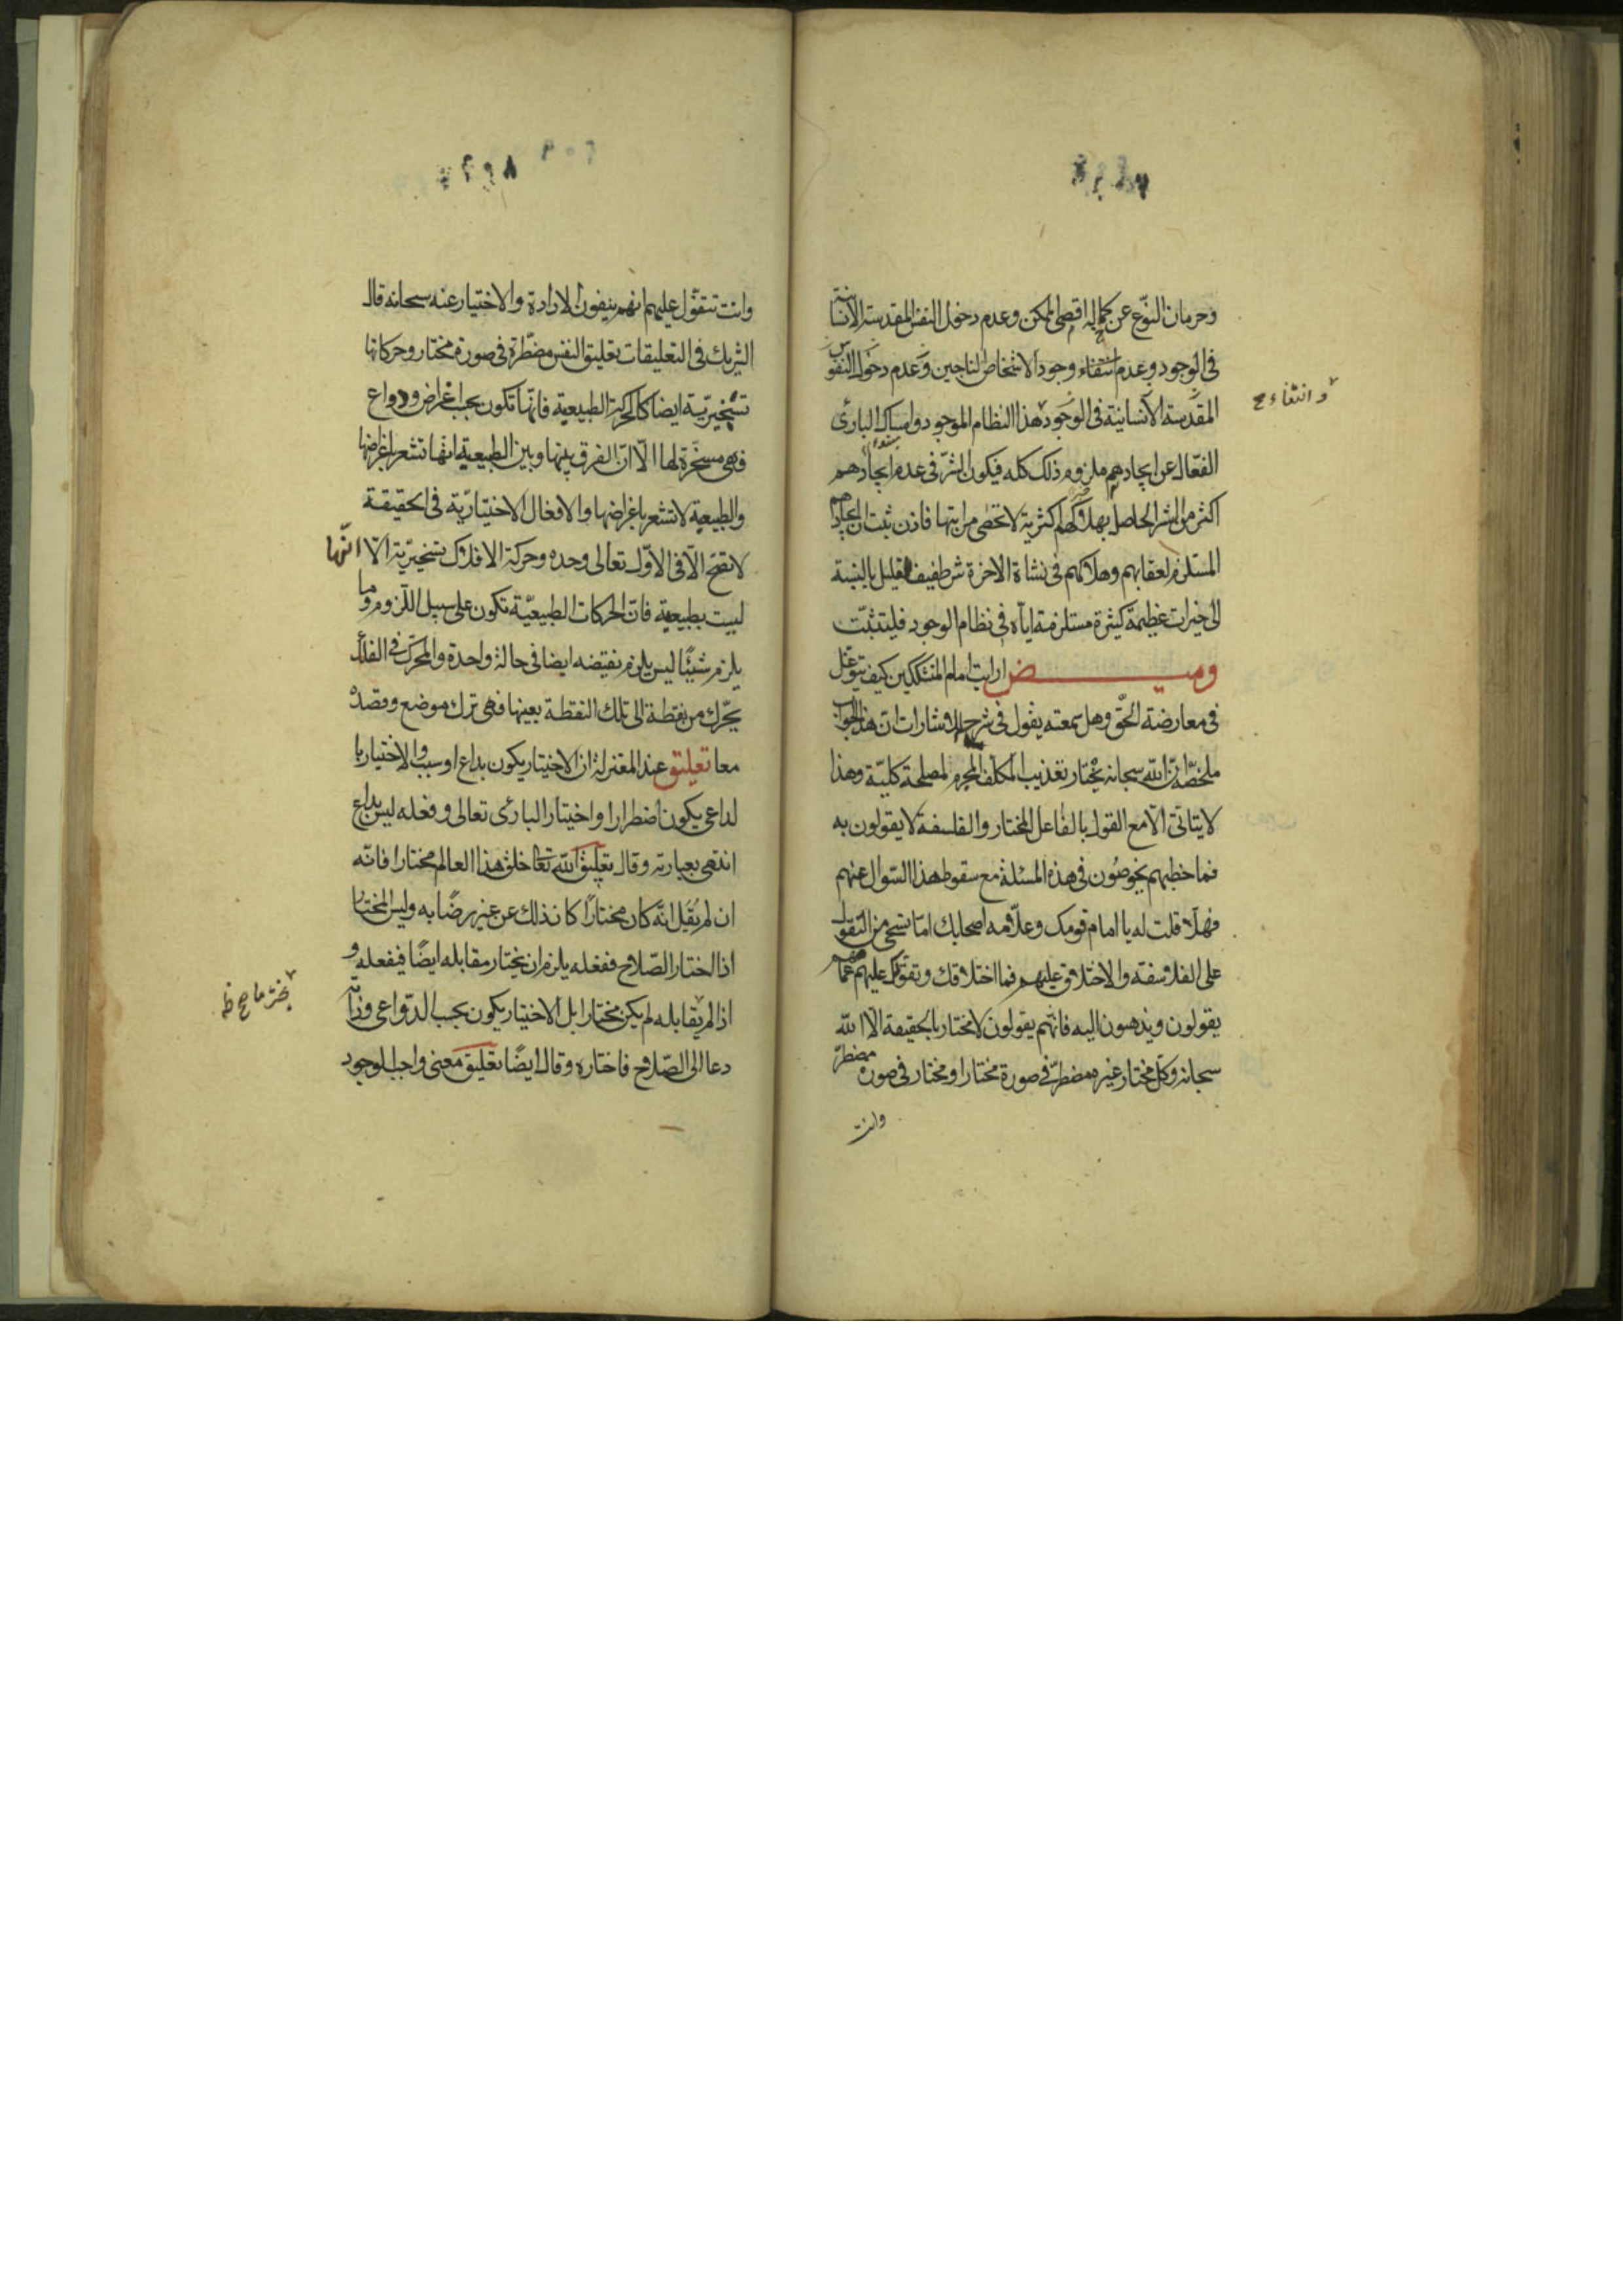 وحرمان النوع عن كماله اقصى الممكن وعدم دخول النفس المقدسة الانسانية
في الوجود وعدم انتفاء وجود الاشخاص الناجين وعدم دخول النفوس
المقدسة الانسانية في الوجود هذا النظام الموجود وامساك البارئ
وانتفاء ح
الفعال عن ايجادهم ملزوم ذلك كله فيكون الشر في عدم ايجادهم
اكثر من الشر الحاصل بهلاكهم اكثرية لا تحصى مراتبها فاذن ثبت ان ايجادهم
المستلزم لعقابهم وهلاكهم في نشاة الاخرة شر طفيف قليل بالنسبة
الى خيرات عظيمة كثيرة مستلزمة اياه في نظام الوجود فليتثبت
وميض ارايت امام المتشككين كيف يتوغل
في معارضة الحق وهل سمعته يقول في شرح الاشارات ان هذا الجواب
ملخصه ان الله سبحانه يختار تعذيب المكلف المجرم لمصلحة كلية وهذا
لا يتاتى الا مع القول بالفاعل المختار والفلاسفة لا يقولون به
فما خطبهم يخوضون في هذه المسئلة مع سقوط هذا السوال عنهم
فهلا قلت له يا امام قومك وعلامة اصحابك اما تستحي من التقول
على الفلاسفة والاختلاق عليهم فما اختلاقك وتقولك عليهم عما
يقولون ويذهبون اليه فانهم يقولون لا مختار بالحقيقة الا الله
سبحانه وكل مختار غيره مضطر في صورة مختار او مختار في صورة مضطر
وانت
وانت تتقول عليهم انهم ينفون الارادة والاختيار عنه سبحانه قال
الشريك في التعليقات تعليق النفس مضطرة في صورة مختار وحركاتها
تسخيرية ايضا كالحركة الطبيعية فانها تكون بحسب اغراض ودواع
فهي مسخرة لها الا ان الفرق بينها وبين الطبيعية انها تشعر باغراضها
والطبيعية لا تشعر باغراضها والافعال الاختيارية في الحقيقة
لا تصح الا في الاول تعالى وحده وحركة الافلاك تسخيرية الا انها
ليست بطبيعية فان الحركات الطبيعية تكون على سبيل اللزوم وما
يلزم شيئا ليس يلزم نقيضه ايضا في حالة واحدة والمحرك في الفلك
يحرك من نقطة الى تلك النقطة بعينها فهي ترك موضع وقصده
معا تعليق عند المعتزلة ان الاختيار يكون بداع او سبب والاختيار با
لداعي يكون اضطرارا واختيار البارئ تعالى وفعله ليس بداع
انتهى بعبارته وقال تعليق الله تعا خلق هذا العالم مختارا فانه
ان لم يقل انه كان مختارا كان ذلك عن غير رضا به وليس المختار
اذا اختار الصلاح ففعله يلزم ان يختار مقابله ايضا فيفعله و
اذا لم يقابله لم يكن مختارا بل الاختيار يكون بحسب الدواعي وذاته
دعا الى الصلاح فاختاره وقال ايضا تعليق معنى واجب الوجود